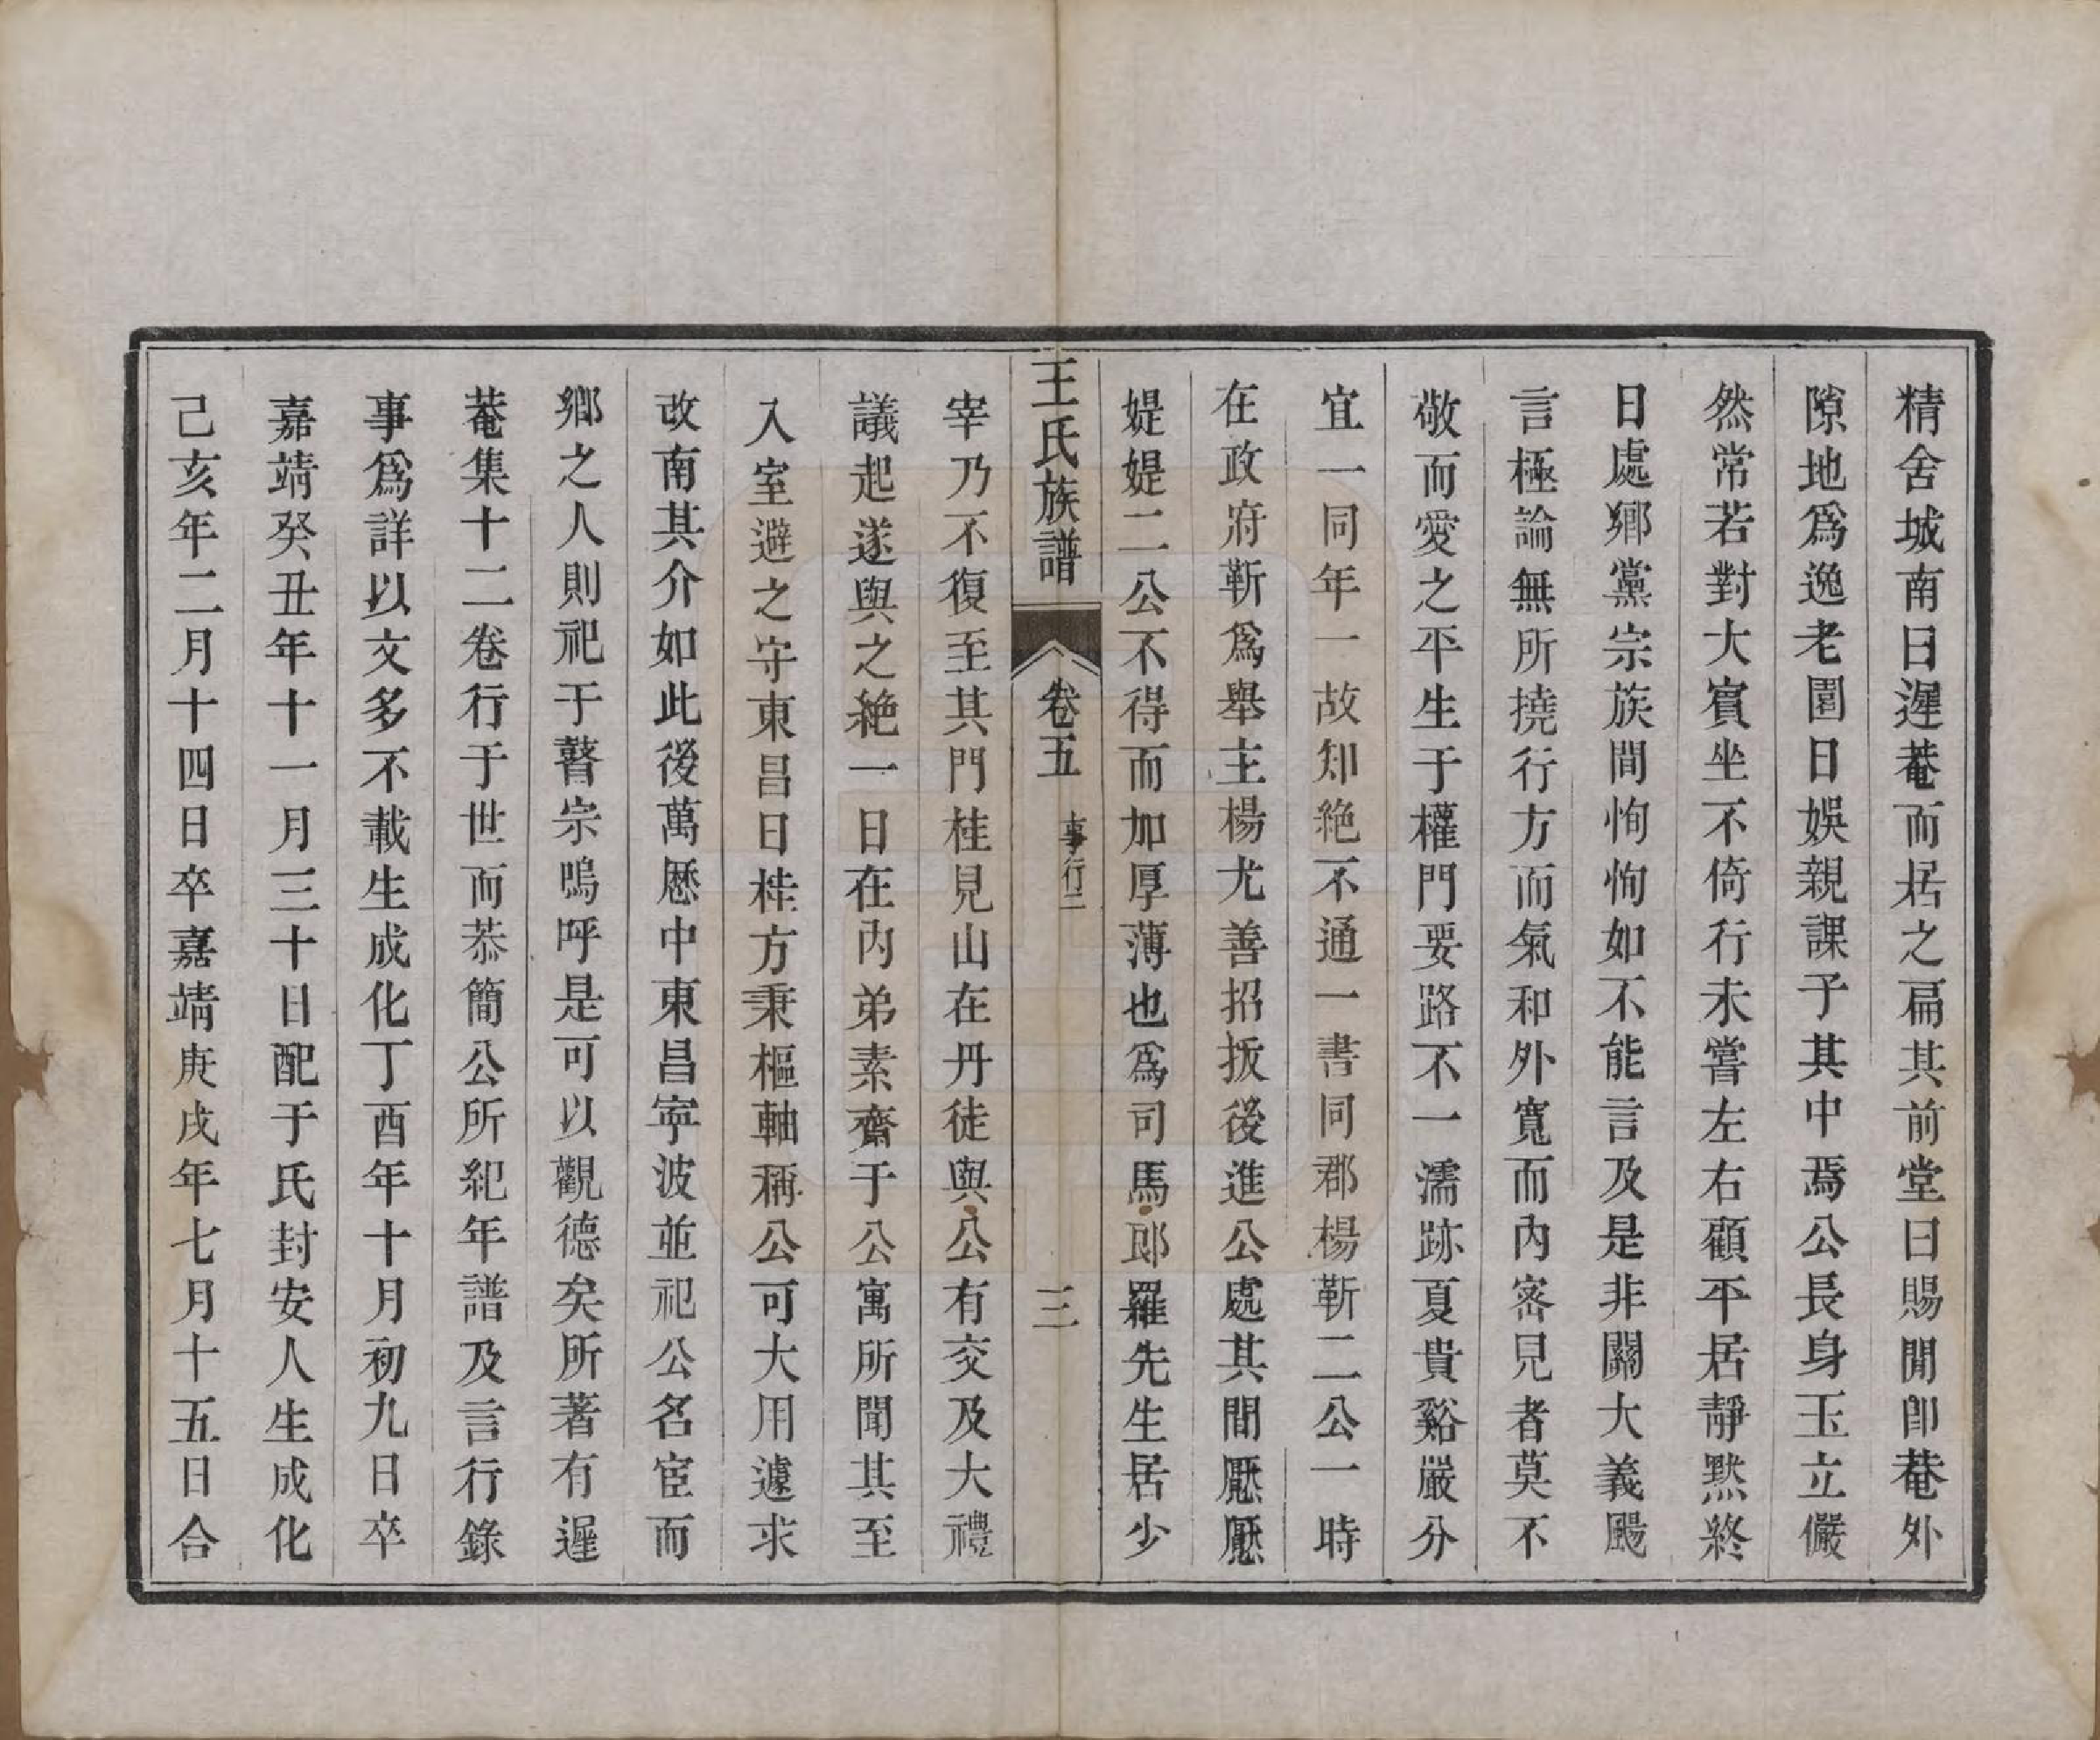 精舍城南曰遲菴而居之扁其前堂曰賜閒卽菴外
隙地爲逸老園日娛親課子其中焉公長身玉立儼
然常若對大賓坐不倚行未嘗左右顧平居靜黙終
日處鄉黨宗族間恂恂如不能言及是非關大義颺
言極論無所撓行方而氣和外寬而內宻見者莫不
敬而愛之平生于權門要路不一濡跡夏貴谿嚴分
宜一同年一故知絶不通一書同郡楊靳二公一時
在政府靳爲舉主楊尤善招扳後進公處其間懕懕
媞媞二公不得而加厚薄也爲司馬郎羅先生居少
宰乃不復至其門桂見山在丹徒與公有交及大禮
議起遂與之絶一日在內弟素齋于公寓所聞其至
入室避之守東昌日桂方秉樞軸稱公可大用遽求
改南其介如此後萬厯中東昌寧波並祀公名宦而
鄉之人則祀于瞽宗嗚呼是可以觀德矣所著有遲
菴集十二卷行于世而恭簡公所紀年譜及言行錄
事爲詳以文多不載生成化丁酉年十月初九日卒
嘉靖癸丑年十一月三十日配于氏封安人生成化
己亥年二月十四日卒嘉靖庚戌年七月十五日合
王氏族譜 卷五 事行二 三